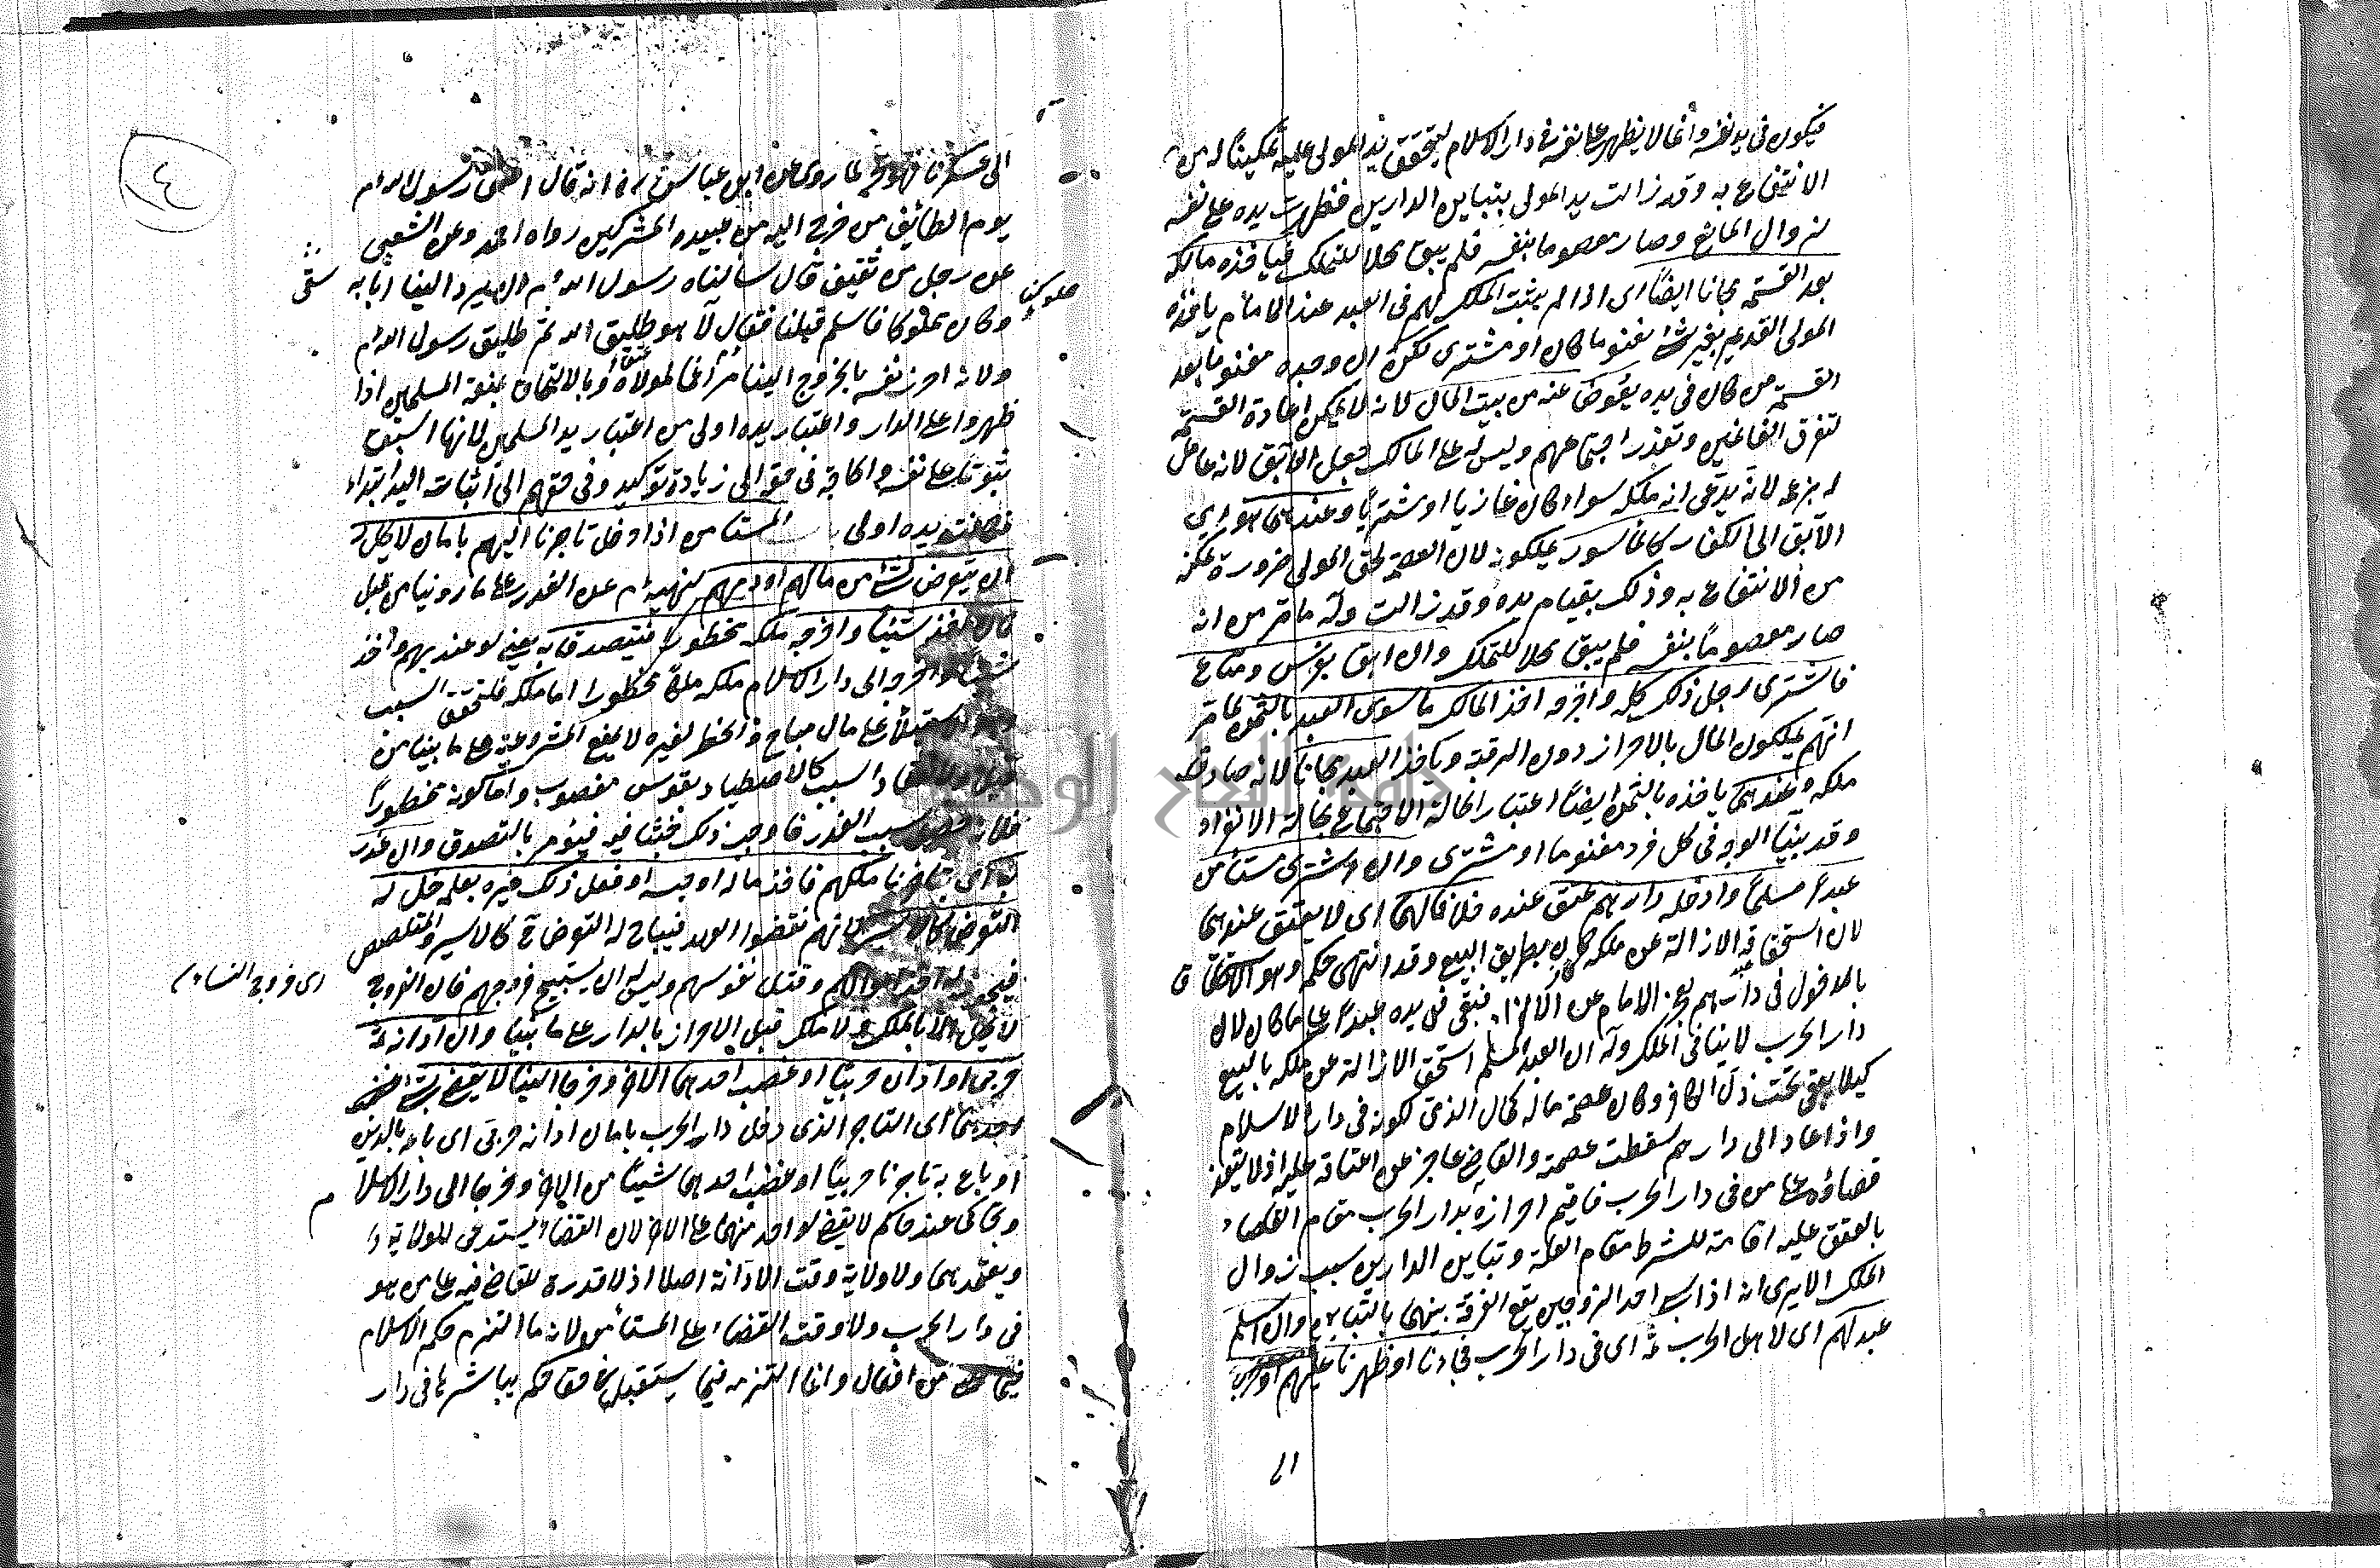 فيكون في يد نفسه وانما لا يظهر على نفسه في دار الاسلام ليتحقق يد المولى عليه تمكينا له من
الانتفاع به وقد زالت يد المولى بتباين الدارين فظهرت يده على نفسه
لزوال المانع وصار معصوما بنفسه فلم يبق محلا للتملك فياخذه مالكه
بعد القسمة مجانا ايضا اى اذا لم يثبت الملك لهم فى العبد عند الامام ياخذه
المولى القديم بغير شئ مغنوما كان او مشترى لكن ان وجده مغنوما بعد
القسمة من كان فى يده يعوض عنه من بيت المال لانه لا يمكن اعادة القسمة
لتفرق الغانمين وتعذر اجتماعهم وليس له على المالك جعل الآبق لانه عامل
له بزعمه لانه يدعى انه ملكه سواء كان غازيا او مشتريا وعندهما هو اى
الآبق الى الكفار كالماسور يملكونه لان العصمة لحق المولى ضرورة تمكنه
من الانتفاع به وذلك بقيام يده وقد زالت وله ما مر من انه
صار معصوما بنفسه فلم يبق محلا للتملك وان ابق بفرس ومتاع
فاشترى رجل ذلك كله واخرجه اخذ المالك ما سوى العبد بالثمن لما مر
انهم يملكون المال بالاحراز دون الرقبة وياخذ العبد مجانا لانه صادف
ملكه وعندهما ياخذه بالثمن ايضا اعتبارا لحالة الاجتماع بحالة الانفراد
وقد بينا الوجه فى كل فرد مغنوما او مشترى وان اشترى مستامن
عبدا مسلما وادخله دارهم عتق عنده خلافا لهما اى لا يعتق عندهما
لان استحقاقه الازالة عن ملكه كان بطريق البيع وقد انتهى حكمه وهو الاستحقاق
بالدخول فى دارهم لعجز الامام عن الالزام فبقى فى يده عبدا على ما كان لان
دار الحرب لا ينافى الملك وله ان العبد المسلم استحق الازالة عن ملكه بالبيع
كيلا يبقى تحت ذل الكافر وكان عصمة ماله كمال الذمى لكونه فى دار الاسلام
واذا عاد الى دار حربه سقطت عصمته والقاضى عاجز عن اعتاقه عليه اذ لا ينفذ
قضاؤه على من فى دار الحرب فاقيم احرازه بدار الحرب مقام القضاء
بالعتق عليه اقامة للشرط مقام العلة وتباين الدارين سبب زوال
الملك الا يرى انه اذا سبى احد الزوجين تقع الفرقة بينهما بالتباين وان اسلم
عبد لهم اى لاهل الحرب ثمه اى فى دار الحرب فجاءنا او ظهرنا عليهم او خرج
الى
٤
الى عسكرنا فهو حر لما روى عن ابن عباس رض انه قال اعتق رسول الله م
يوم الطائف من خرج اليه من عبيد المشركين رواه احمد وعن الشعبى
عن رجل من ثقيف قال سالناه رسول الله م ان يرد الينا ابا بكرة
مملوكنا
وكان مملوكا فاسلم قبلنا فقال لا هو طليق الله ثم طليق رسول الله م
ولانه احرز نفسه بالخروج الينا مراغما لمولاه او بالالتحاق بمنعة المسلمين اذا
ظهروا على الدار واعتبار يده اولى من اعتبار يد المسلمين لانها اسبق
ثبوتا على نفسه والحاجة فى حقه الى زيادة توكيد وفى حقهم الى اثبات اليد ابتداء
فكانت يده اولى المستامن اذا دخل تاجرنا اليهم بامان لا يحل له
ان يتعرض لشئ من مالهم او دمهم لنهيه م عن الغدر على ما روينا من قبل
فان اخذ شيئا واخرجه ملكه محظورا فيتصدق به يعنى لو غدر بهم واخذ
شيئا واخرجه الى دار الاسلام ملكه ملكا محظورا اما ملكه فلتحقق السبب
وهو الاستيلاء على مال مباح والحظر لغيره لا يمنع المشروعية على ما بينا من
قبل ولانعقاد السبب كالاصطياد بقوس مغصوب واما كونه محظورا
فلانه حصل بسبب الغدر فاوجب ذلك خبثا فيه فيؤمر بالتصدق وان غدر
به اى بتاجرنا ملكهم فاخذ ماله او حبسه او فعل ذلك غيره بعلمه حل له
التعرض لمالهم لانهم نقضوا العهد فيباح له التعرض كالاسير والمتلصص
فيجوز له اخذ اموالهم وقتل نفوسهم وليس له ان يستبيح فروجهم فان الفروج
اى فروج النساء م
لا تحل الا بالملك ولا ملك قبل الاحراز بالدار على ما بينا وان ادانه ثمه
حربى او ادان حربيا او غصب احدهما الاخر وخرجا الينا لا يقضى بشئ
لاحدهما اى التاجر الذى دخل دار الحرب بامان ادانه حربى اى باعه بالدين
او باع به تاجرنا حربيا او غصب احدهما شيئا من الاخر وخرجا الى دار الاسلام
وتحاكما عند حاكم لا يقضى لواحد منهما على الاخر لان القضاء يستدعى الولاية
ويعتمدها ولا ولاية وقت الادانة اصلا اذ لا قدرة للقاضى فيه على من هو
فى دار الحرب ولا وقت القضاء على المستامن لانه ما التزم حكم الاسلام
فيما مضى من افعاله وانما التزمه فيما يستقبل فى حق حكم يباشرها فى دار